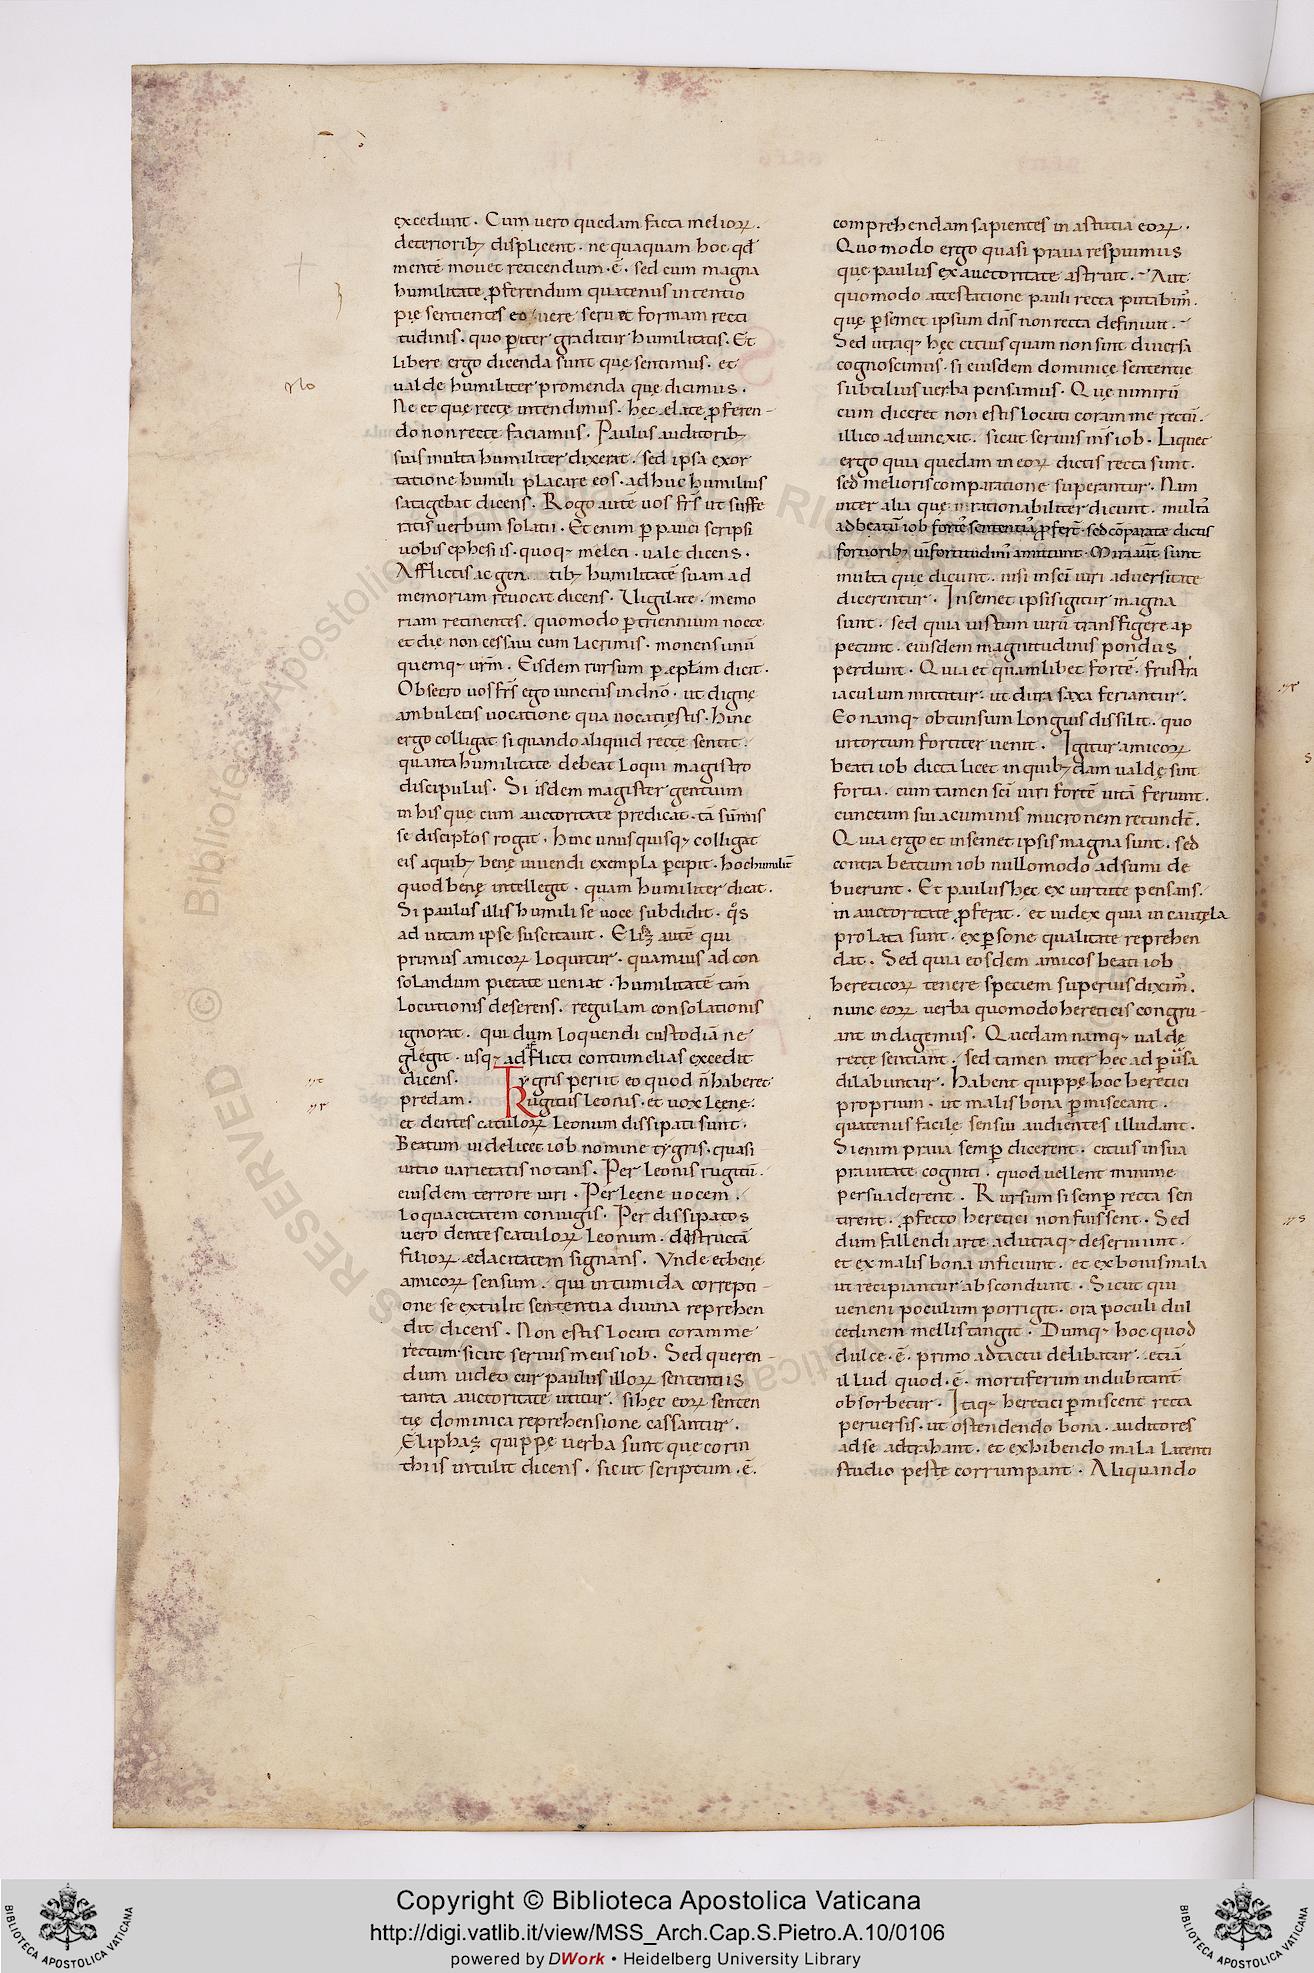 excedunt. Cum vero quedam facta meliorꝝ.
deteriorib; displicent. ne quaquam hoc qđ
mentē mouet reticendum .ē. sed cum magna
humilitate ꝓferendum quatenus intentio
pię sentientes eo uere seruet formam recti
tudinis. quo ꝑiter graditur humilitatis. Et
libere ergo dicenda sunt quę sentimus. et
ualde humiliter promenda quę dicimus.
Ne et quę recte intendimus. hęc elate ꝓferen-
do non recte faciamus. Paulus auditorib;
suis multa humiliter dixerat. sed ipsa exor
tatione humili placare eos. ad huc humilius
satagebat dicens. Rogo autē uos frs̄ ut suffe
ratis uerbum solatii. Et enim ꝑ pauci scripsi
uobis ephesiis. quoq; meleti. uale dicens.
Afflictis ac gen tib; humilitatē suam ad
memoriam reuocat dicens. Uigilate. memo
riam retinentes. quomodo ꝑ triennium nocte
et die non cessaui cum lacrimis. monens unū
quemq; urm̄. Eisdem rursum ꝑ epłam dicit.
Obsecro uos frs̄ ego iunctus in dnō. ut digne
ambuletis uocatione qua uocati estis. hinc
ergo colligat si quando aliquid recte sentit.
quanta humilitate debeat loqui magistro
discipulus. Si isdem magister gentium
in his que cum auctoritate predicat. tā sūmis
se discipłos rogat. hinc unus quisq; colligat
eis a quib; benę uiuendi exempla ꝑcipit. hoc humilit̄
quod benę intellegit. quam humiliter dicat.
Si paulus illis humili se uoce subdidit. qōs
ad uitam ipse suscitauit. Elifaz autē qui
primus amicorꝝ loquitur. quamuis ad con
solandum pietate ueniat. humilitatē tam̄
locutionis deserens. regulam consolationis
ignorat. qui dum loquendi custodiā ne
glegit. usq; ad afflicti contumelias excedit
dicens. Tygris periit eo quod n̄ haberet
predam. Rugitus leonis. et uox leenę.
et dentes catulorꝝ leonum dissipati sunt.
Beatum uidelicet iob nomine tygris. quasi
uitio uarietatis notans. Per leonis rugitū.
eiusdem terrore uiri. Per leene uocem.
loquacitatem coniugis. Per dissipatos
uero dentes catulorꝝ leonum. destructā
filiorꝝ edacitatem signans. Unde et bene
amicorꝝ sensum. qui in tumida correpti-
one se extulit sententia diuina reprehen
dit dicens. Non estis locuti coram me
rectum sicut seruus meus iob. Sed queren-
dum uideo cur paulus illorꝝ sententiis
tanta auctoritate utitur. si hęc eorꝝ senten
tię dominica reprehensione cassantur.
Eliphaz quippę uerba sunt que corin
thiis intulit dicens. sicut scriptum .ē.
comprehendam sapientes in astutia eorꝝ.
Quomodo ergo quasi praua respuimus
quę paulus ex auctoritate astruit. Aut
quomodo attestatione pauli recta putabim̄.
quę ꝑ semet ipsum dn̄s non recta definiuit.
Sed utraq; hęc citius quam non sint diuersa
cognoscimus. si eiusdem dominicę sententię
subtilius uerba pensamus. Quę nimirū
cum diceret non estis locuti coram me rectū.
illico adiunexit. sicut seruus ms̄ iob. Liquet
ergo quia quedam in eorꝝ dictis recta sunt.
sed melioris comparatione superantur. Nam
inter alia que inrationabiliter dicunt. multā
ad beatū iob fortē sententiā ꝓfert. sed cōparate dictis
fortiorib; uim fortitudinis amittunt. Mira aut̄ sunt
multa quę dicunt. nisi in sci̅ uiri aduersitate
dicerentur. In semet ipsis igitur magna
sunt. sed quia iustum uirū transfigere ap
petunt. eiusdem magnitudinis pondus
perdunt. Quia et quamlibet fortē. frustra
iaculum mittitur. ut dura saxa feriantur.
Eo namq; obtunsum longius dissilit. quo
intortum fortiter uenit. Igitur amicorꝝ
beati iob dicta licet in quib;dam ualdę sint
fortia. cum tamen sci̅ uiri fortē uitā feriunt.
cunctum sui acuminis mucronem retundt̄.
Quia ergo et in semet ipsis magna sunt. sed
contra beatum iob nullomodo adsumi de
buerunt. Et paulus hęc ex uirtute pensans.
in auctoritate ꝓferat. et iudex quia incautęla
prolata sunt. ex ꝑsone qualitate reprehen
dat. Sed quia eosdem amicos beati iob
hereticorꝝ tenere speciem superius dixim̄.
nunc eorꝝ uerba quomodo hereticis congru-
ant indagemus. Quedam namq; ualdę
recte sentiunt. sed tamen inter hec ad ꝑuersa
dilabuntur. Habent quippę hoc heretici
proprium. ut malis bona ꝑmisceant.
quatenus facilę sensui audientes illudant.
Si enim praua semꝑ dicerent. citius in sua
prauitate cogniti. quod uellent minime
persuaderent. Rursum si semꝑ recta sen
tirent. ꝓfecto heretici non fuissent. Sed
dum fallendi arte ad utraq; deseruiunt.
et ex malis bona inficiunt. et ex bonis mala
ut recipiantur abscondunt. Sicut qui
ueneni poculum porrigit. ora poculi dul
cedinem mellis tangit. Dumq; hoc quod
dulce .ē. primo ad tactu delibatur. etiā
illud quod .ē. mortiferum indubitant
obsorbetur. Itaq; heretici ꝑmiscent recta
peruersis. ut ostendendo bona. auditores
ad se adtrahant. et exhibendo mala latenti
studio peste corrumpant. Aliquando
Copyright © Biblioteca Apostolica Vaticana
http://digi.vatlib.it/view/MSS_Arch.Cap.S.Pietro.A.10/0106
powered by DWork • Heidelberg University Library
BIBLIOTECA APOSTOLICA VATICANA
BIBLIOTECA APOSTOLICA VATICANA